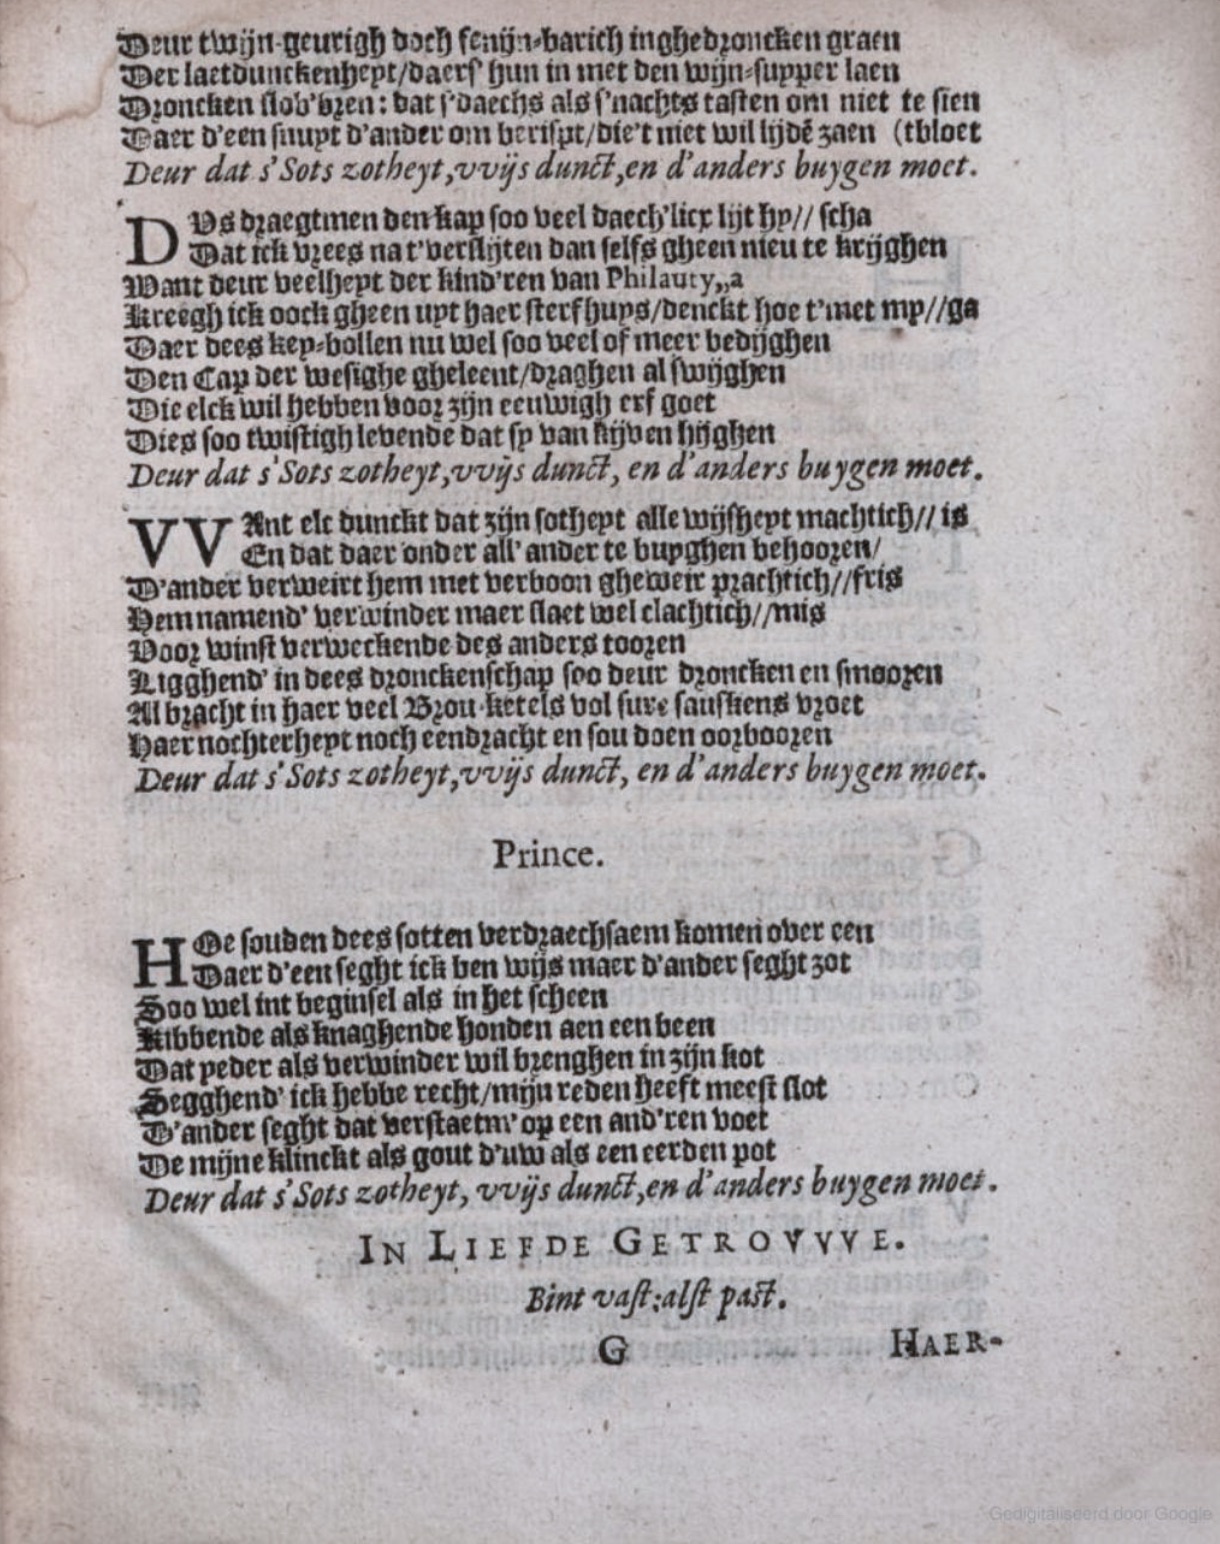 Deur twijn-geurigh doch fenijn-barich inghedroncken graen
Der laetdunckenheyt/daers' hun in met den wijn-supper laen
Droncken slob'bren: dat s'daechs als s'nachts tasten om niet te sien
Daer d'een snupt d'ander om berispt/die't niet wil lijdē zaen (tbloet
Deur dat s'Sots zotheyt,vvijs dunct,en d'anders buygen moet.
DUs draegtmen den kap soo veel daech'licx lijt hy// scha
Dat ick vrees na t'verslijten dan selfs gheen nieu te krijghen
Want deur veelheyt der kind'ren van Philauty,,a
Kreegh ick oock gheen uyt haer sterfhuys/denckt hoe t'met my//ga
Daer dees key-bollen nu wel soo veel of meer bedijghen
Den Cap der wesighe gheleent/draghen al swijghen
Die elck wil hebben voor zijn eeuwigh erf goet
Dies soo twistigh levende dat sy van kijven hijghen
Deur dat s'Sots zotheyt,vvijs dunct, en d'anders buygen moet.
VVAnt elc dunckt dat zijn sotheyt alle wijsheyt machtich// is
En dat daer onder all' ander te buyghen behooren/
D'ander verweirt hem met verboon gheweir prachtich//fris
Hem namend' verwinder maer slaet wel clachtich//mis
Voor winst verweckende des anders tooren
Ligghend' in dees dronckenschap soo deur droncken en smooren
Al bracht in haer veel Brou-ketels vol sure sauskens vroet
Haer nochterheyt noch eendracht en sou doen oorbooren
Deur dat s'Sots zotheyt,vvijs dunct, en d'anders buygen moet.
Prince.
HOe souden dees sotten verdraechsaem komen over een
Daer d'een seght ick ben wijs maer d'ander seght zot
Soo wel int beginsel als in het scheen
Kibbende als knaghende honden aen een been
Dat yeder als verwinder wil brenghen in zijn kot
Segghend' ick hebbe recht/mijn reden heeft meest slot
D'ander seght dat verstaetm' op een and'ren voet
De mijne klinckt als gout d'uw als een eerden pot
Deur dat s'Sots zotheyt, vvijs dunct,en d'anders buygen moet.
IN LIEFDE GETROVVVE.
Bint vast:alst past.
G HAER-
Gedigitaliseerd door Google